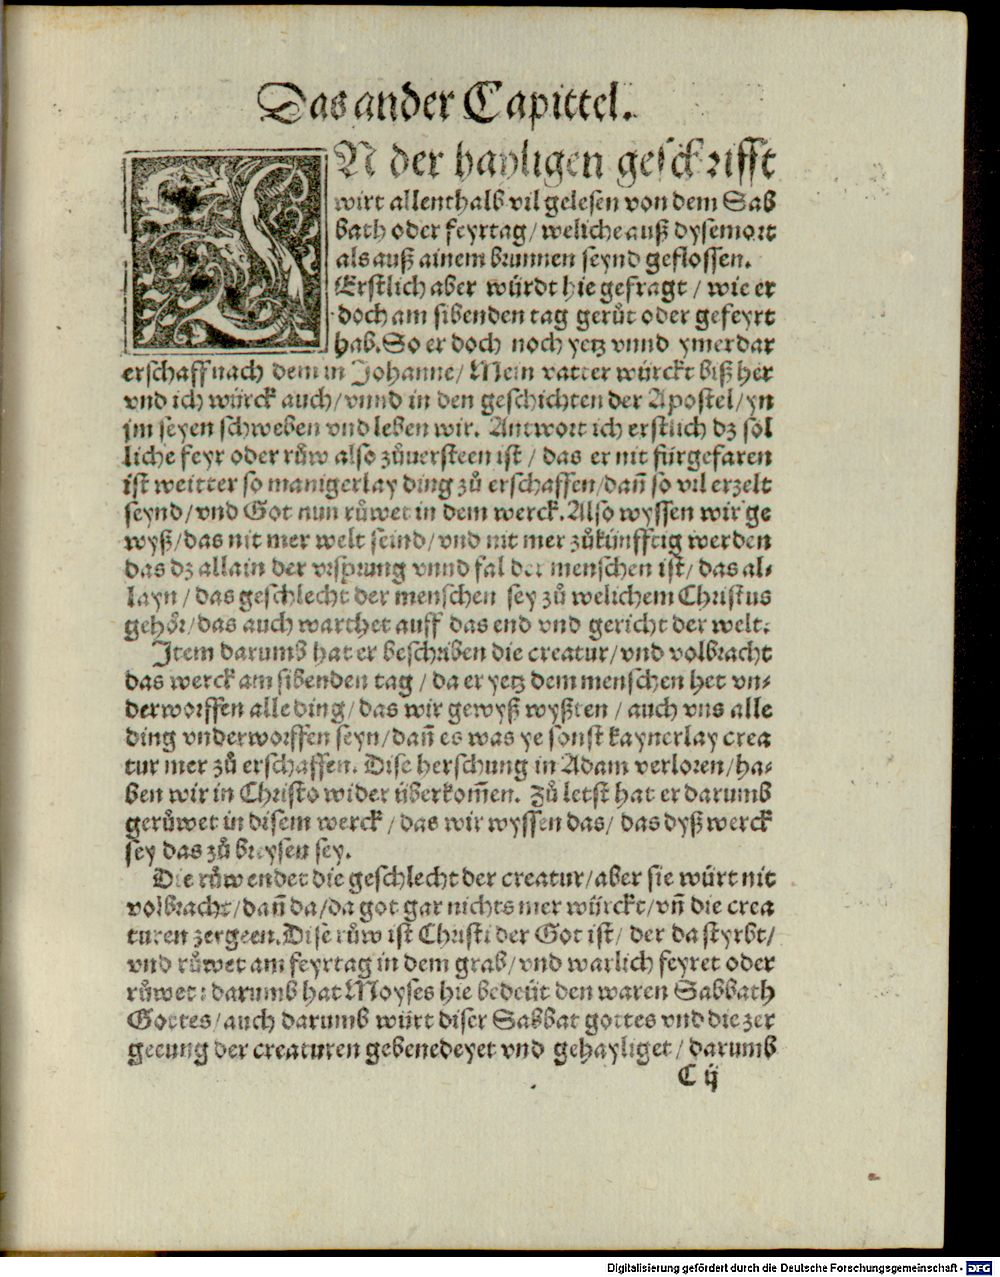 Das ander Capittel.
IN der hayligen geschrifft
wirt allenthalb vil gelesen von dem Sab
bath oder feyrtag/ weliche auß dysem ort
als auß ainem brunnen seynd geflossen.
Erstlich aber würdt hie gefragt / wie er
doch am sibenden tag gerůt oder gefeyrt
hab. So er doch noch yetz vnnd ymerdar
erschaff nach dem in Johanne/ Mein vatter würckt biß her
vnd ich würck auch/ vnnd in den geschichten der Apostel/ yn
jm seyen schweben vnd leben wir. Antwort ich erstlich dz sol
liche feyr oder růw also zůuersteen ist / das er nit fürgefaren
ist weitter so manigerlay ding zů erschaffen/ dañ so vil erzelt
seynd/ vnd Got nun růwet in dem werck. Also wyssen wir ge
wyß/ das nit mer welt seind/ vnd nit mer zůkünfftig werden
das dz allain der vrsprung vnnd fal der menschen ist/ das al-
layn / das geschlecht der menschen sey zů welichem Christus
gehör/ das auch warthet auff das end vnd gericht der welt.
Item darumb hat er beschriben die creatur/ vnd volbracht
das werck am sibenden tag / da er yetz dem menschen het vn-
derworffen alle ding/ das wir gewyß wyßten / auch vns alle
ding vnderworffen seyn/ dañ es was ye sonst kaynerlay crea
tur mer zů erschaffen. Dise herschung in Adam verloren/ ha-
ben wir in Christo wider überkom̃en. Zů letst hat er darumb
gerůwet in disem werck / das wir wyssen das/ das dyß werck
sey das zů breysen sey.
Die růw endet die geschlecht der creatur/ aber sie würt nit
volbracht/ dañ da/ da got gar nichts mer würckt/ vñ die crea
turen zergeen. Dise růw ist Christi der Got ist/ der da styrbt/
vnd růwet am feyrtag in dem grab/ vnd warlich feyret oder
růwet: darumb hat Moyses hie bedeüt den waren Sabbath
Gottes/ auch darumb würt diser Sabbat gottes vnd die zer
geeung der creaturen gebenedeyet vnd gehayliget / darumb
C ij
Digitalisierung gefördert durch die Deutsche Forschungsgemeinschaft - DFG